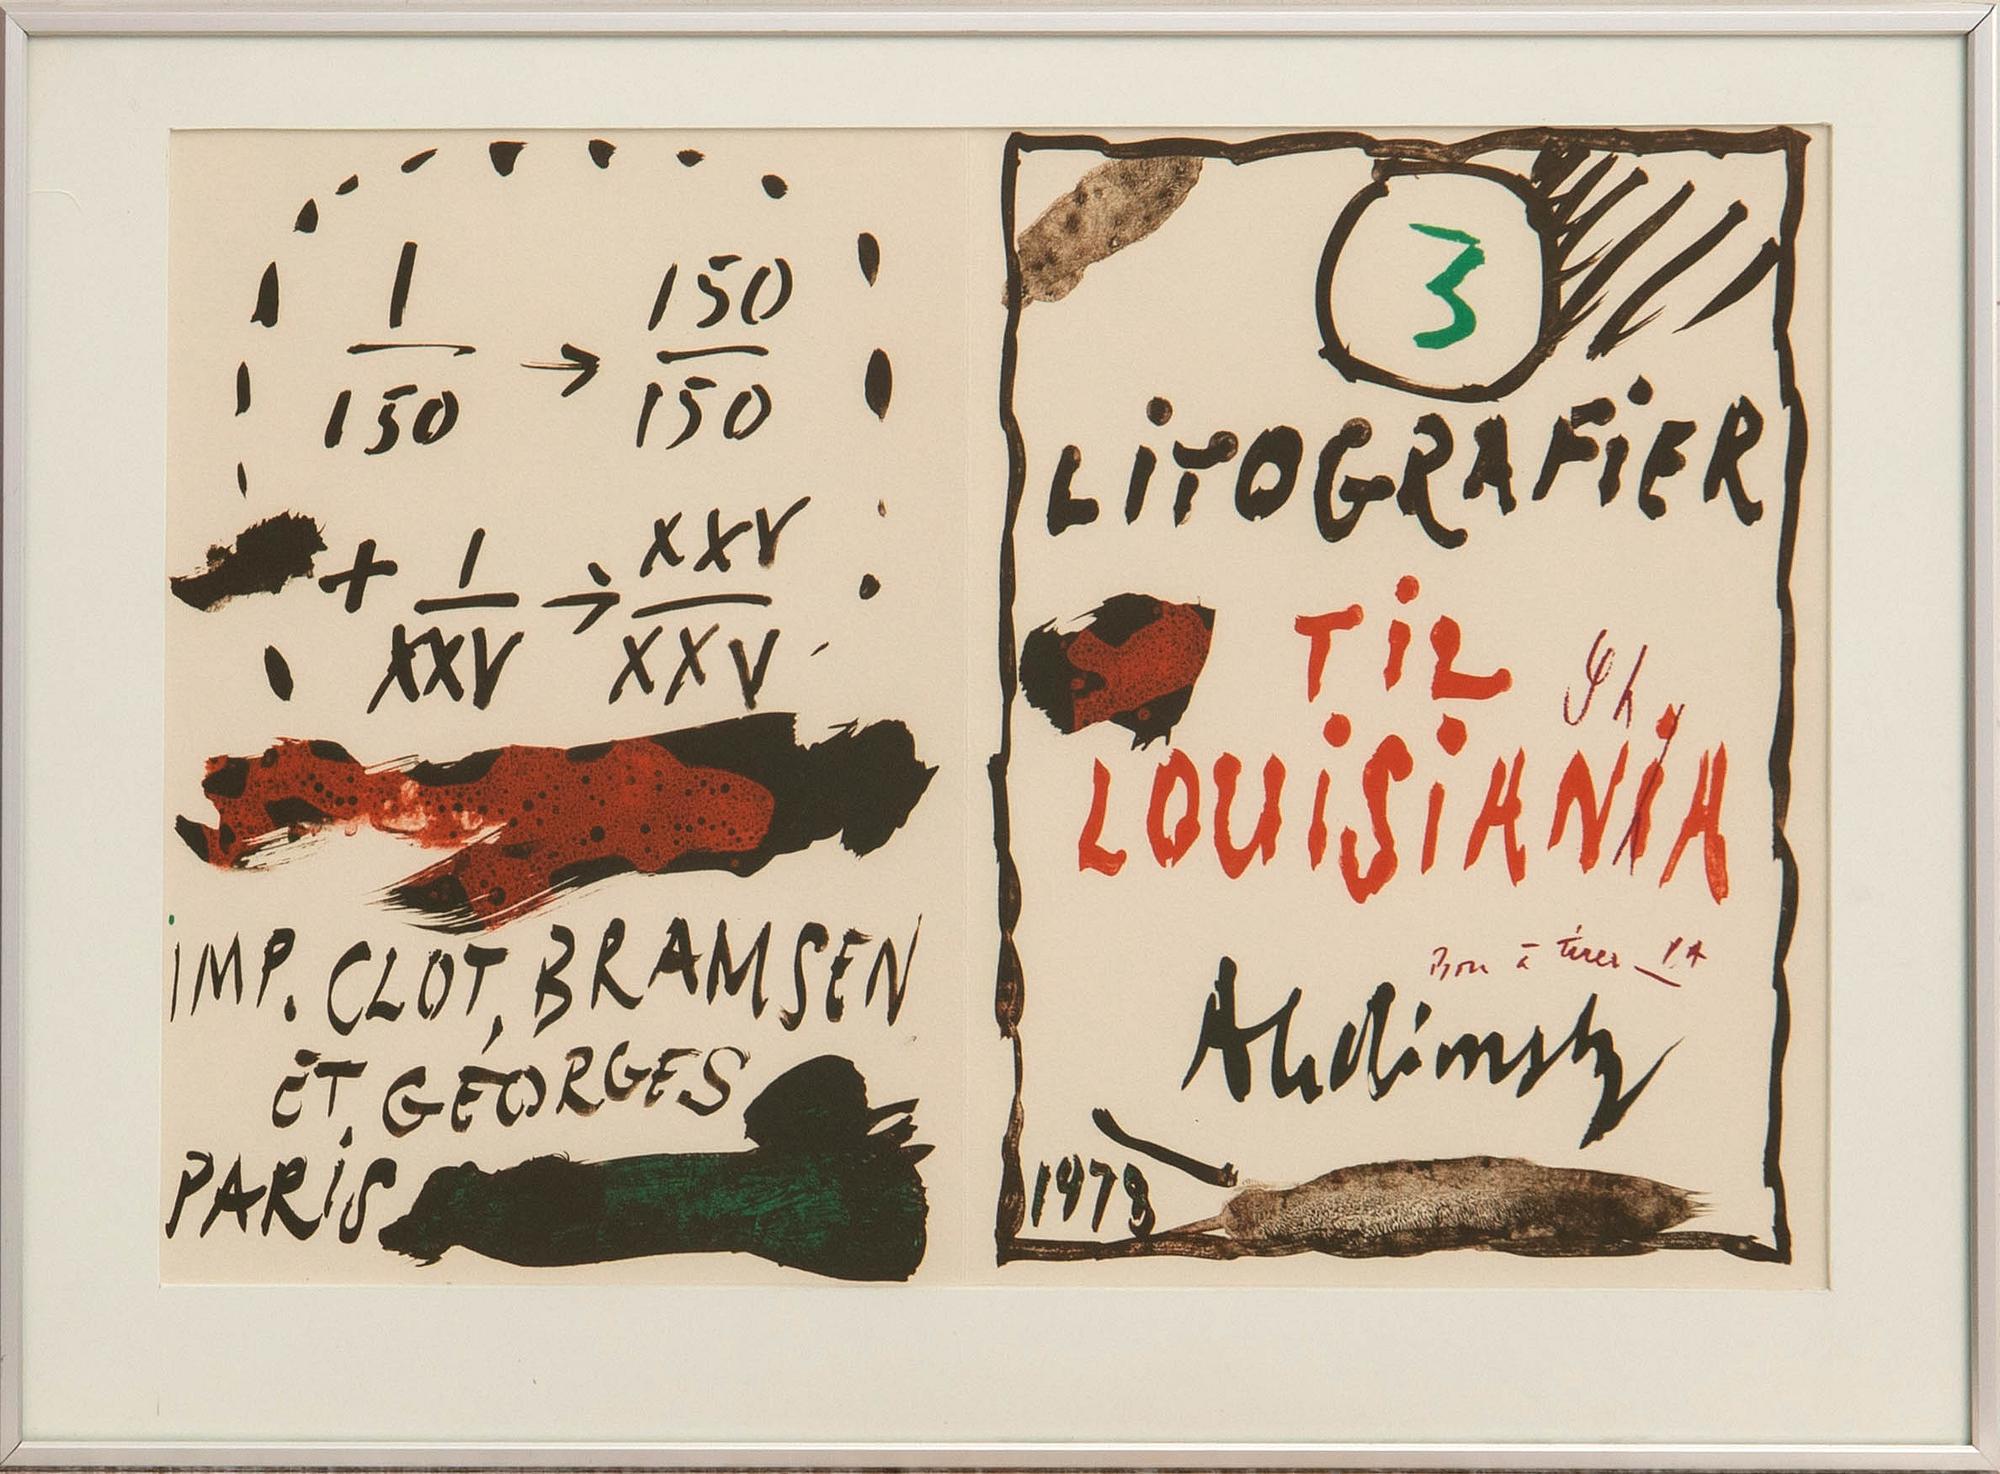 1 150
— → —
150 150
+ 1 → XXV
— —
XXV XXV
IMP. CLOT, BRAMSEN
ET GEORGES
PARIS
3
LITOGRAFIER
TIL
LOUISIANIA
Bon à tirer PA
Alechinsky
1978